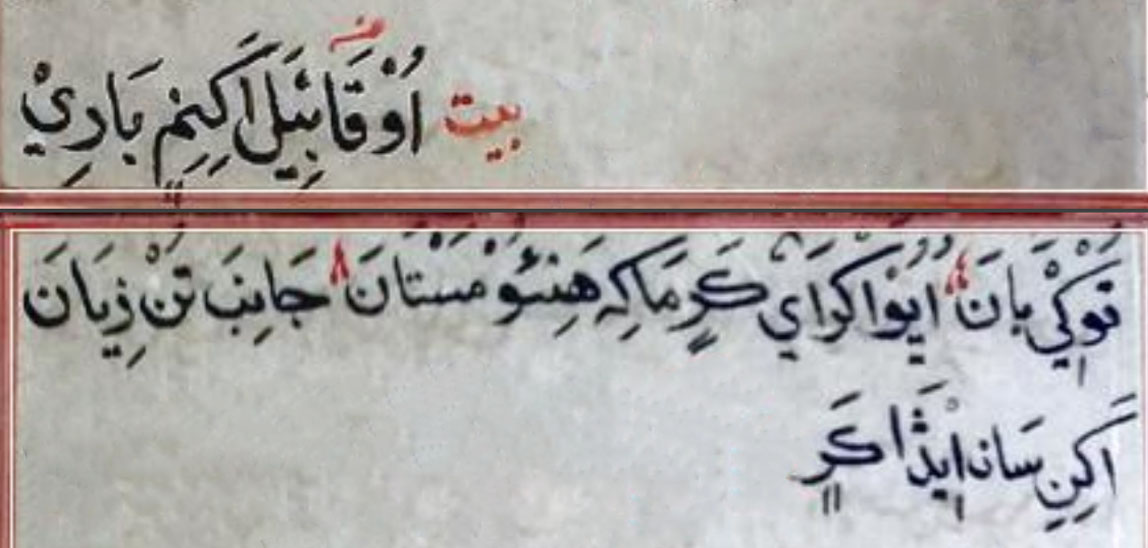 بيت اُوْ قَابِيَلَ اَکِنِمِ بَارِيْ
تَوْکِيْ بَانَ اُپُوْا کَرَايَ کَرِ مَاکِہ هَنِئوْ مَستَانَ جَانِبَ تَنْ زِيَانَ
اَکِنِ سَانہ اِيْذَا کَرِ